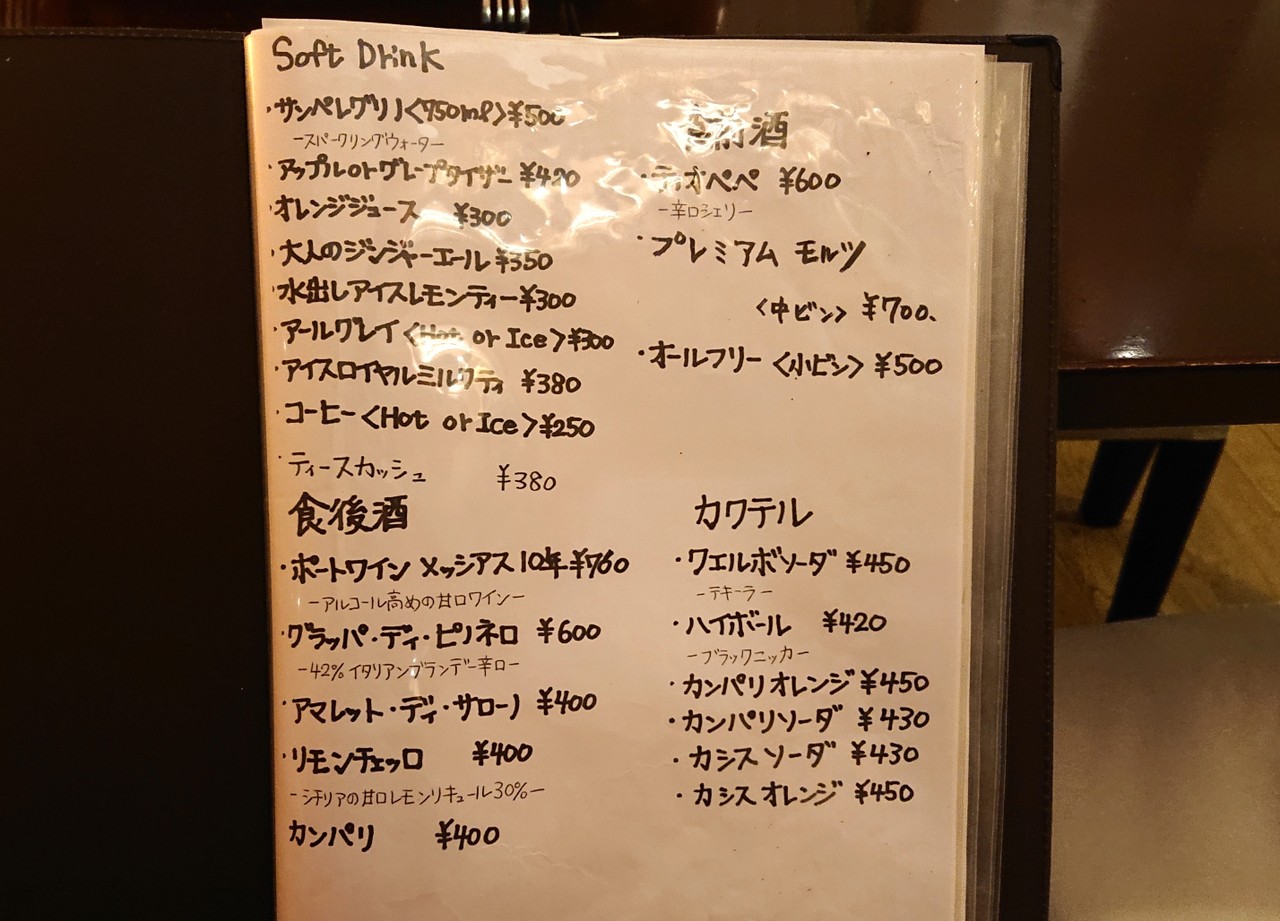 Soft Drink
・サンペレグリノ<750ml>¥500
−スパークリングウォーター−
・アップルorグレープタイザー ¥420
・オレンジジュース ¥300
・大人のジンジャーエール¥350
・水出しアイスレモンティー¥300
・アールグレイ<Hot or Ice>¥300
・アイスロイヤルミルクティ ¥380
・コーヒー<Hot or Ice>¥250
・ティースカッシュ ¥380
食後酒
・ポートワイン メッシアス10年 ¥760
−アルコール高めの甘口ワイン−
・グラッパ・ディ・ピノネロ ¥600
−42%イタリアンブランデー辛口−
・アマレット・ディ・サローノ ¥400
・リモンチェッロ ¥400
−シチリアの甘口レモンリキュール30%−
カンパリ ¥400
食前酒
・ティオペペ ¥600
−辛口シェリー−
・プレミアム モルツ
<中ビン> ¥700.
・オールフリー <小ビン> ¥500
カクテル
・クエルボソーダ ¥450
−テキーラ−
・ハイボール ¥420
−ブラックニッカ−
・カンパリオレンジ ¥450
・カンパリソーダ ¥430
・カシスソーダ ¥430
・カシスオレンジ ¥450